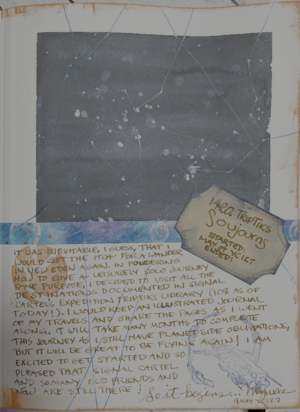 1422 TRIPTIKS
SOJOURNS
STARTED
MAY
ENDED:
IT WAS INEVITABLE, I GUESS, THAT I
WOULD GET THE ITCH FOR A WANDER
IN NEW EDEN AGAIN. IN PONDERING
HOW TO GIVE A LEISURELY SOLO JOURNEY
SOME PURPOSE, I DECIDED TO VISIT ALL THE
DESTINATIONS DOCUMENTED IN SIGNAL
CARTEL'S EXPEDITION TRIPTIKS LIBRARY (108 AS OF
TODAY!). I WOULD KEEP AN ILLUSTRATED JOURNAL
OF MY TRAVELS AND SHARE THE PAGES AS I WENT
ALONG. IT WILL TAKE MANY MONTHS TO COMPLETE
THIS JOURNEY AS I STILL HAVE PLANETSIDE OBLIGATIONS,
BUT IT WILL BE GREAT TO BE FLYING AGAIN! I AM
EXCITED TO GET STARTED AND SO
PLEASED THAT SIGNAL CARTEL
AND SO MANY OLD FRIENDS AND
NOW ARE STILL THERE!
So it begins...